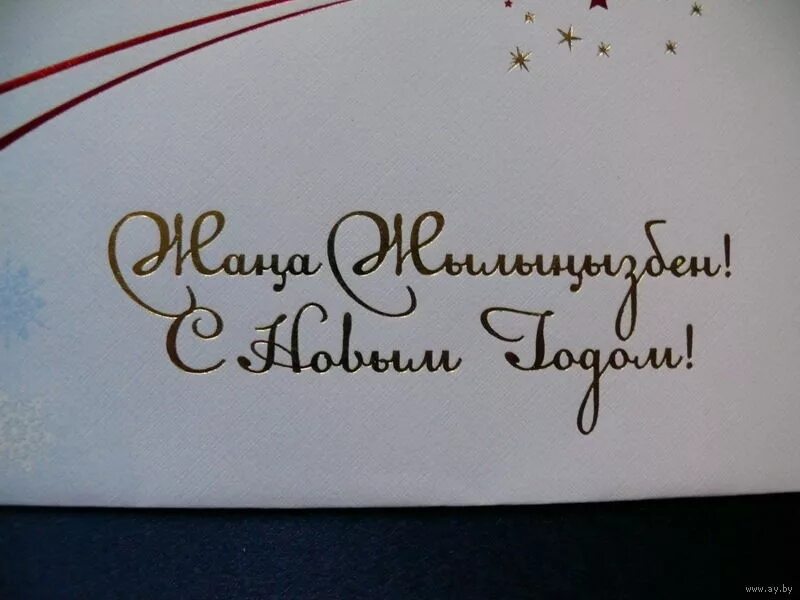 Жаңа Жылыңызбен!
С Новым Годом!
www.ay.by